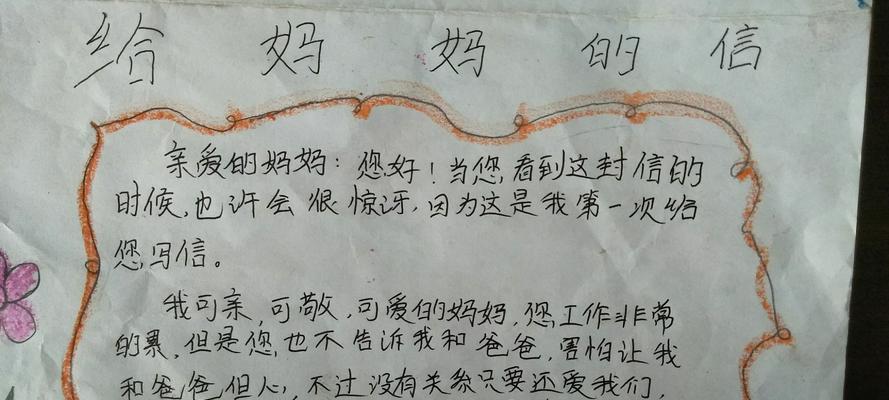 给妈妈的信
亲爱的妈妈：您好！当您看到这封信的
时候，也许会很惊讶，因为这是我第一次给
您写信。
我可亲，可敬，可爱的妈妈，您工作非常
的累，但是您也不告诉我和爸爸，害怕让我
和爸爸但心，不过没有关系只要还爱我们，